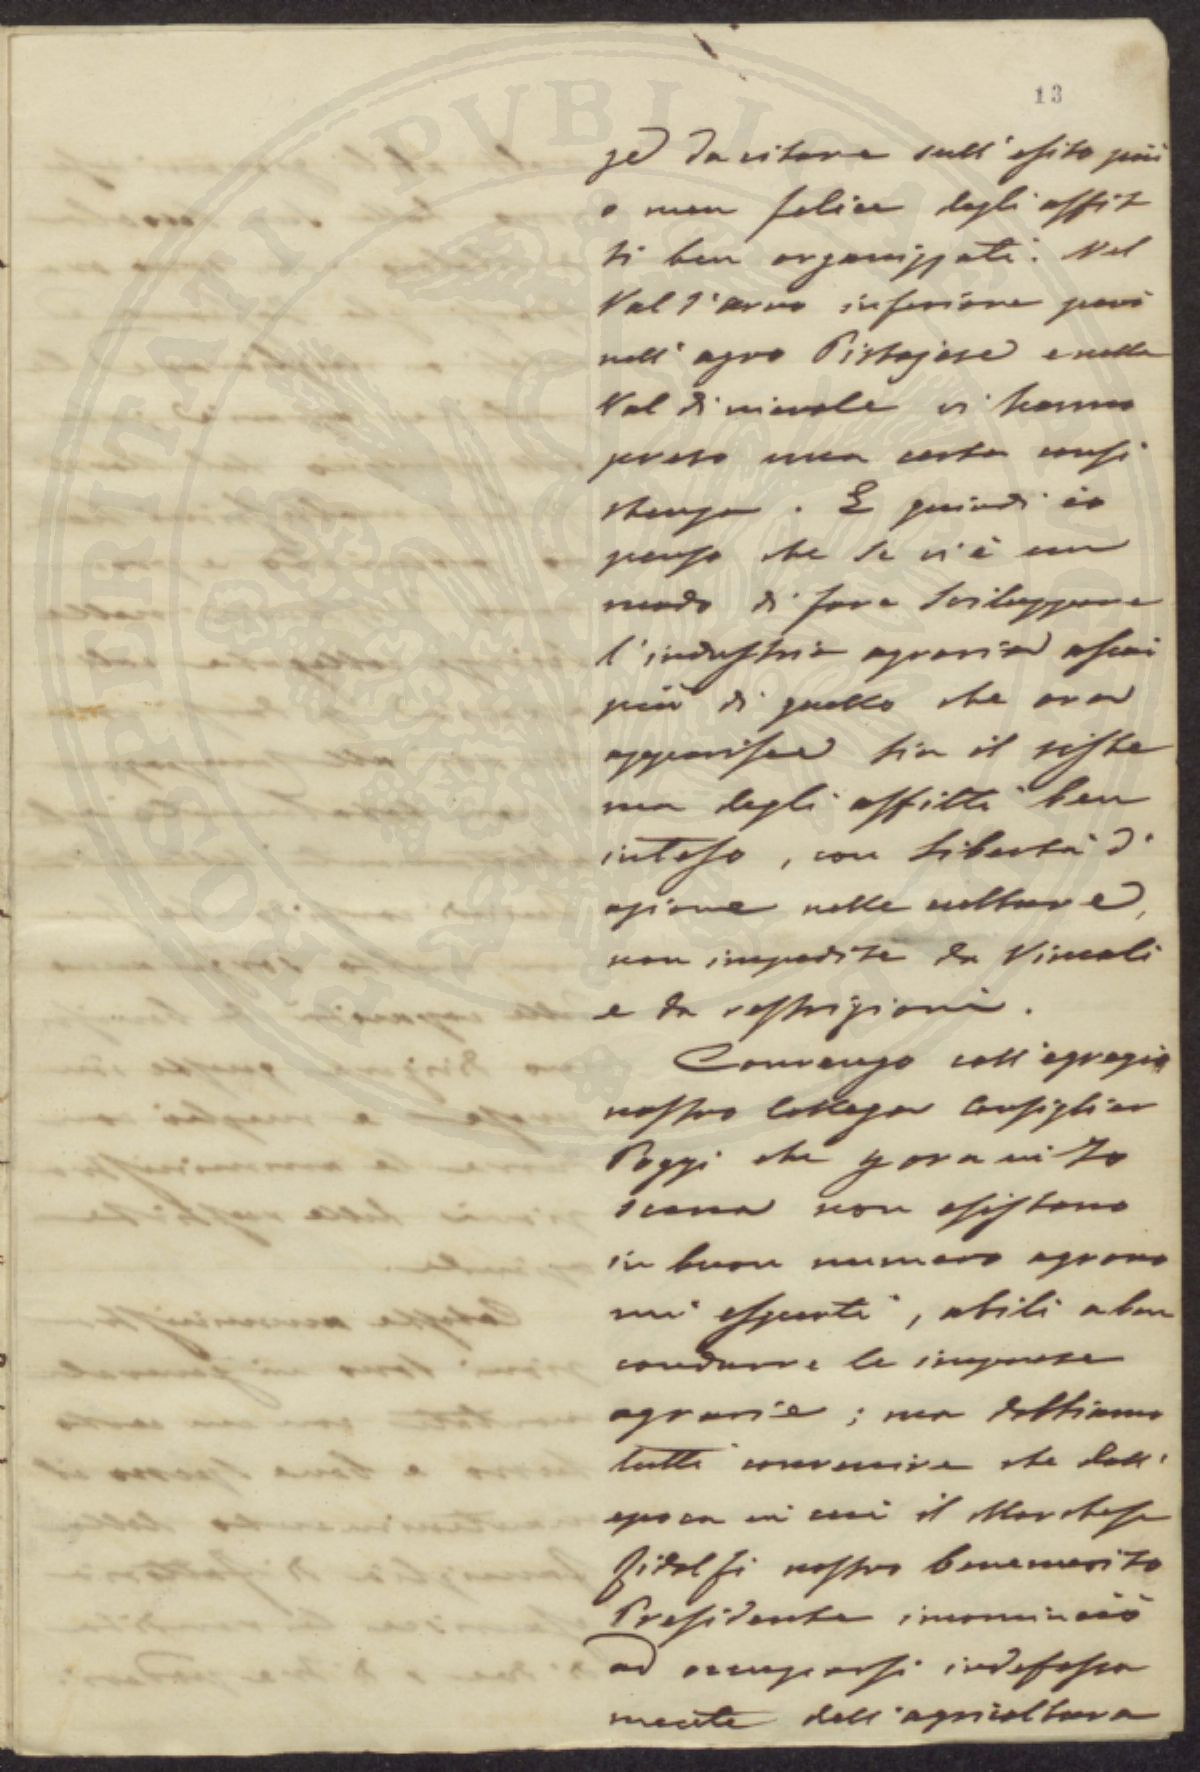 13
ge da citare sull'esito più
o men felice degli affit
ti ben organizzati. Nel
Val d'arno inferiore però
nell'agro Pistojese e nella
Val di nievole vi hanno
preso una certa consi
stenza. E quindi io
penso che se vi è un
modo di fare sviluppare
l'industria agraria assai
più di quello che ora
apparisce sia il siste
ma degli affitti ben
inteso, con libertà di
azione nelle culture,
non impedite da Vincoli
e da restrizioni.
Convengo coll'egregio
nostro Collega Consiglier
Poggi che per ora in To
scana non esistano
in buon numero agrono
mi esperti, abili a ben
condurre le imprese
agrarie; ma dobbiamo
tutti convenire che dall'
epoca in cui il Marchese
Ridolfi nostro benemerito
Presidente incominciò
ad occuparsi indefessa
mente dell'agricoltura
PROSPERITATI PVBLICAE